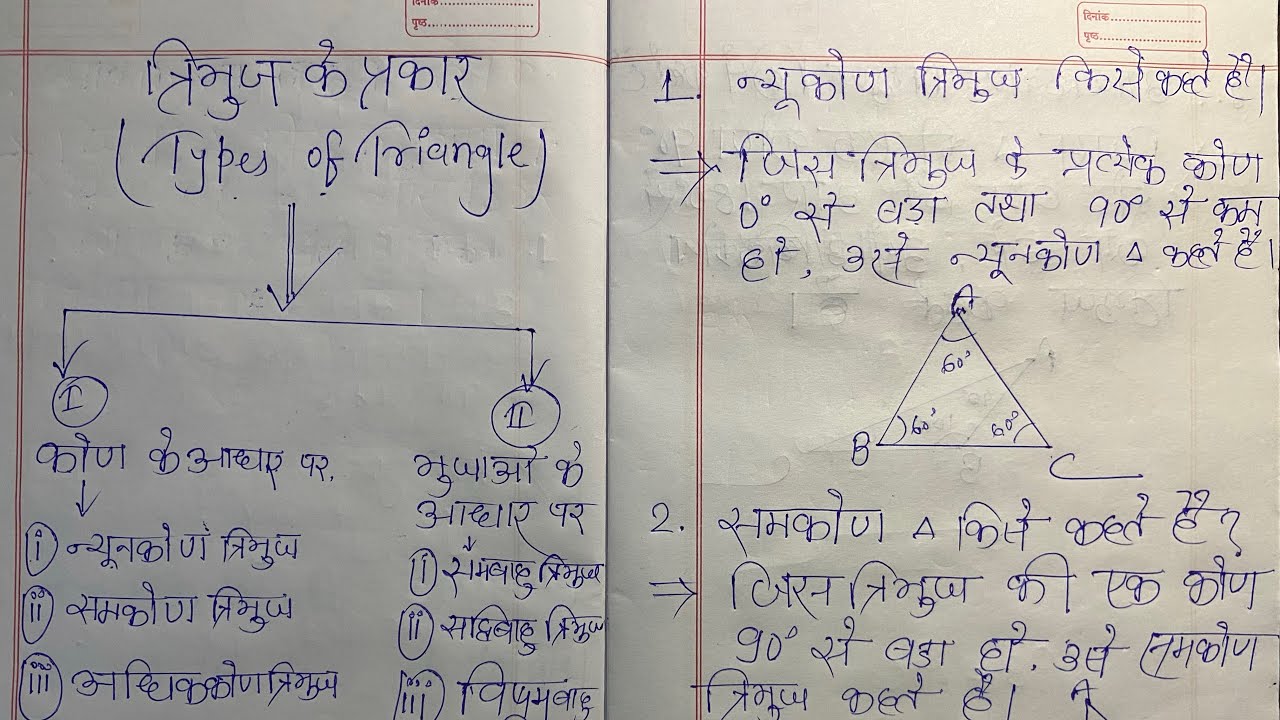 दिनांक
पृष्ठ
त्रिभुज के प्रकार
(Types of Triangle)
I
II
कोण के आधार पर.
भुजाओं के
आधार पर
i न्यूनकोण त्रिभुज
ii समकोण त्रिभुज
iii अधिककोण त्रिभुज
i समबाहु त्रिभुज
ii सद्विबाहु त्रिभुज
iii विषमबाहु
दिनांक
पृष्ठ
1. न्यूकोण त्रिभुज किसे कहते है।
⇒ जिस त्रिभुज के प्रत्येक कोण
0° से बड़ा तथा 90° से कम
हो, उसे न्यूनकोण Δ कहते हैं।
A
60°
60°
60°
B
C
2. समकोण Δ किसे कहते है?
⇒ जिस त्रिभुज की एक कोण
90° से बड़ा हो. उसे समकोण
त्रिभुज कहते है।